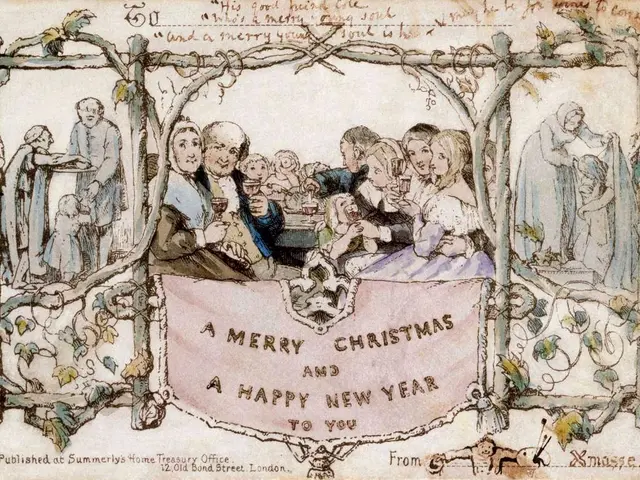 To
"His good friend Cole
"Who's a merry young soul
"and a merry young soul is he"
may he be for years to come
A MERRY CHRISTMAS
AND
A HAPPY NEW YEAR
TO YOU
Published at Summerly's Home Treasury Office.
12, Old Bond Street, London.
From
Xmasse